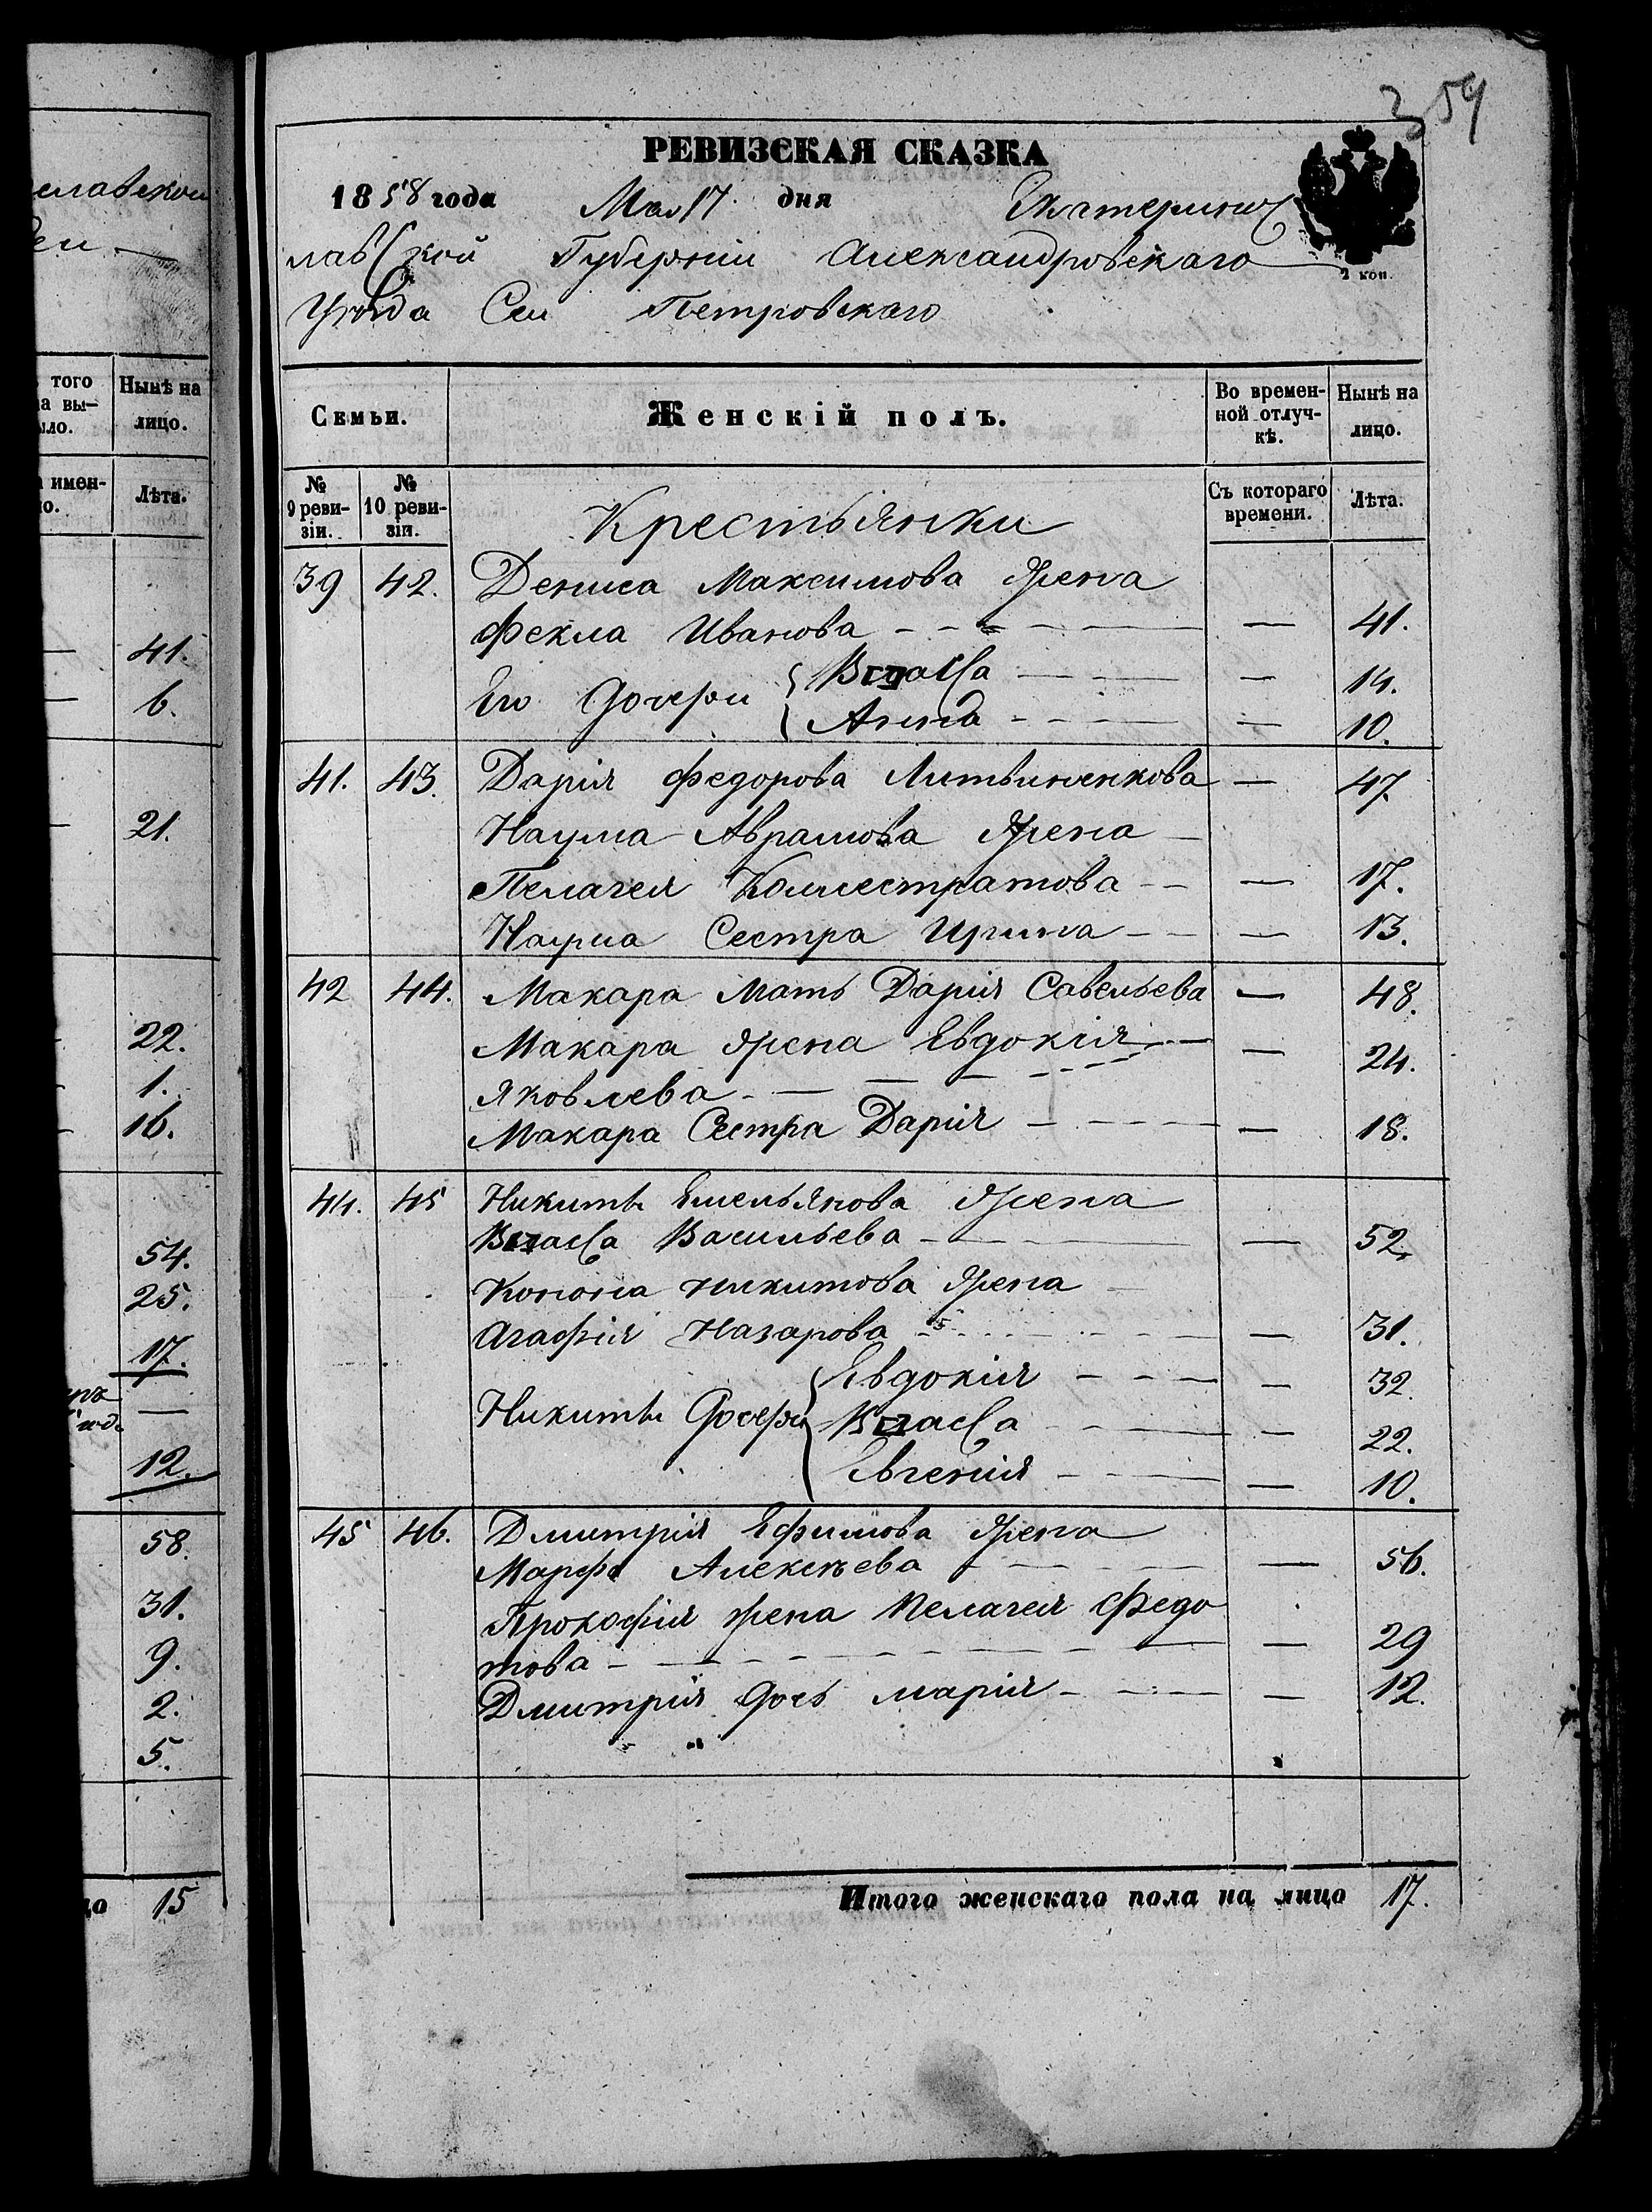 359
РЕВИЗСКАЯ СКАЗКА
1858 года Мая 17. дня Екатеринос
лавской Губернии Александровскаго
2 коп.
Уѣзда Сел Петровскаго
славской
того
а вы-
ыло.
Нынѣ на
лицо.
Семьи.
Женскій полъ.
Во времен-
ной отлуч-
кѣ.
Нынѣ на
лицо.
имен-
о.
Лѣта.
№
9 реви-
зіи.
№
10 реви-
зіи.
Съ котораго
времени.
Лѣта.
Крестьянки
39 42. Дениса Максимова Жена
Фекла Иванова — 41.
Его Дочери Власса — 14.
Анна — 10.
41. 43. Дарія Федорова Литвиненкова — 47.
Наума Аврамова Жена
Пелагея Каллестратова — 17.
Наума Сестра Ирина — 13.
42 44. Макара Мать Дарія Савельева — 48.
Макара Жена Евдокія — 24.
Яковлева
Макара Сестра Дарія — 18.
44. 45 Никиты Емельянова Жена
Власса Васильева — 52.
Конона Никитова Жена
Агафія Назарова — 31.
Евдокія — 32.
Никиты Дочери Власса — 22.
Евгения — 10.
45 46. Дмитрія Ефимова Жена
Марфа Алексѣева — 56.
Прокофія жена Пелагея Федо
това — 29
Дмитрія Дочь Марія — 12.
Итого женскаго пола на лицо 17.
41.
6.
21.
22.
1.
16.
54.
25.
17.
12.
58.
31.
9.
2.
5.
15